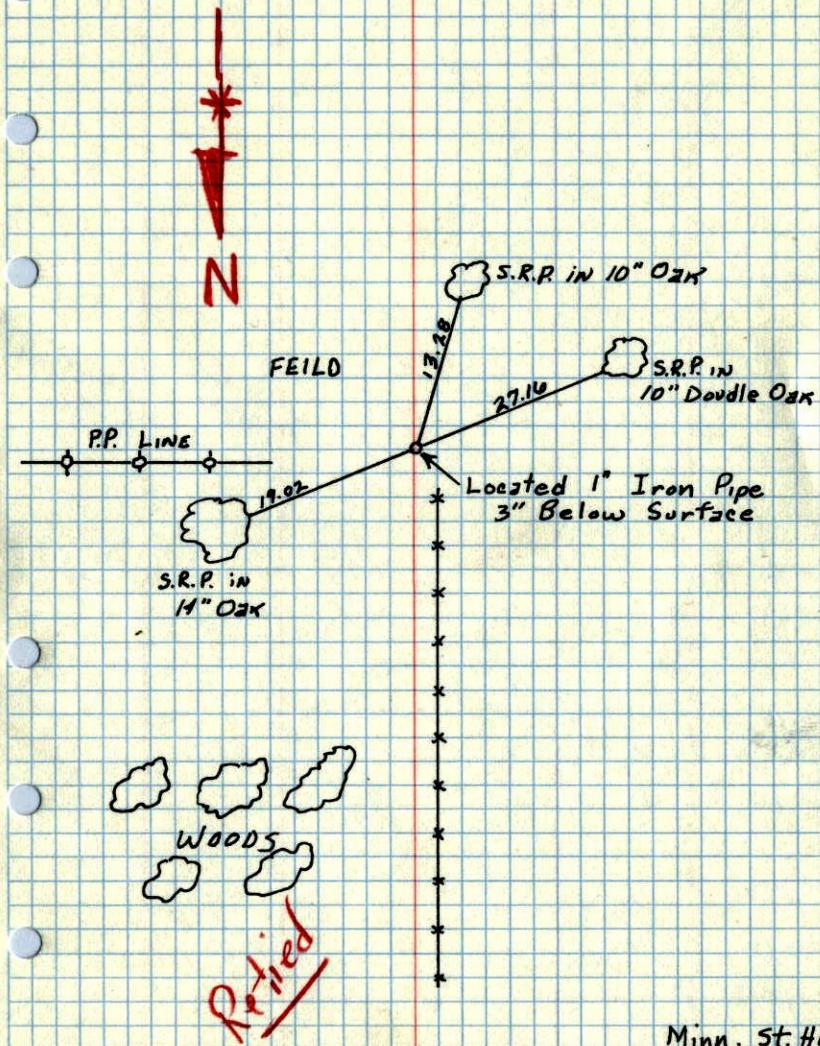 N
S.R.P. in 10" Oak
13.28
FEILD
S.R.P. in
10" Double Oak
27.16
P.P. LINE
Located 1" Iron Pipe
3" Below Surface
19.02
S.R.P. in
14" Oak
WOODS
Retied
Minn. St. H